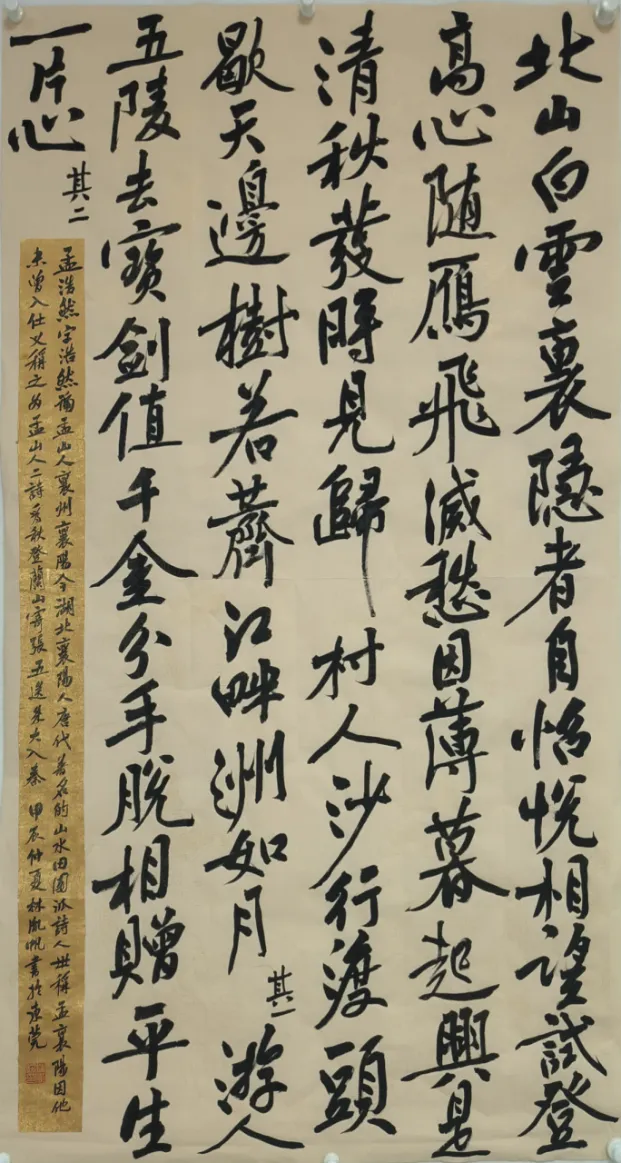 北山白雲裏隱者自怡悅相望試登
高心随鴈飛滅愁因薄暮起興是
清秋發時見歸村人沙行渡頭
歇天邊樹若薺江畔洲如月 其一 游人
五陵去寶劍值千金分手脫相贈平生
一片心 其二
孟浩然字浩然號孟山人襄州襄陽今湖北襄陽人唐代著名的山水田園派詩人世稱孟襄陽因他
未曾入仕又稱之為孟山人二詩爲秋登蘭山寄張五送朱大入秦 甲辰仲夏林書於東莞